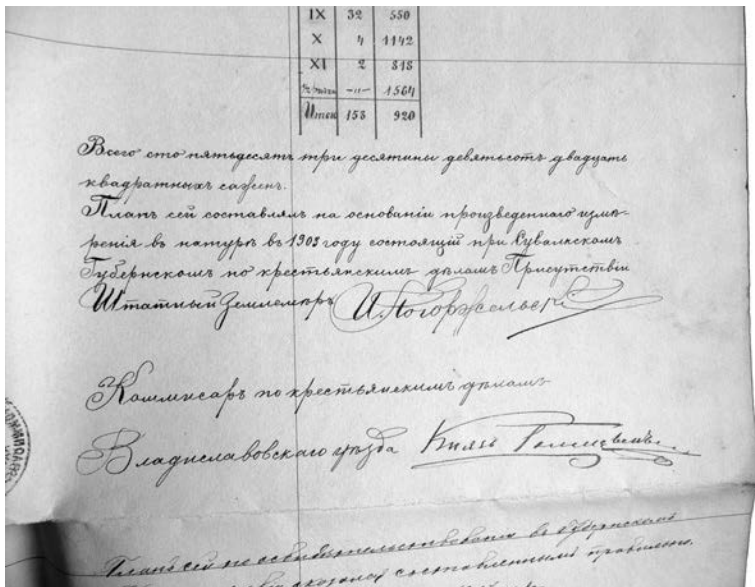 IX 32 550
X 4 1142
XI 2 818
1564
Итого 153 920
Всего сто пятьдесятъ три десятины девятьсотъ двадцать
квадратныхъ саженъ.
Планъ сей составлялъ на основаніи произведеннаго измѣ-
ренія въ натурѣ въ 1903 году состоящій при Сувалкскомъ
Губернскомъ по крестьянскимъ дѣламъ Присутствіи
Штатный Землемѣръ И. Погоржельскі
Коммисаръ по крестьянскимъ дѣламъ
Владиславовскаго уѣзда Князь
Планъ сей по освидѣтельствованіи въ Губернскомъ
оказался составленнымъ правильно.